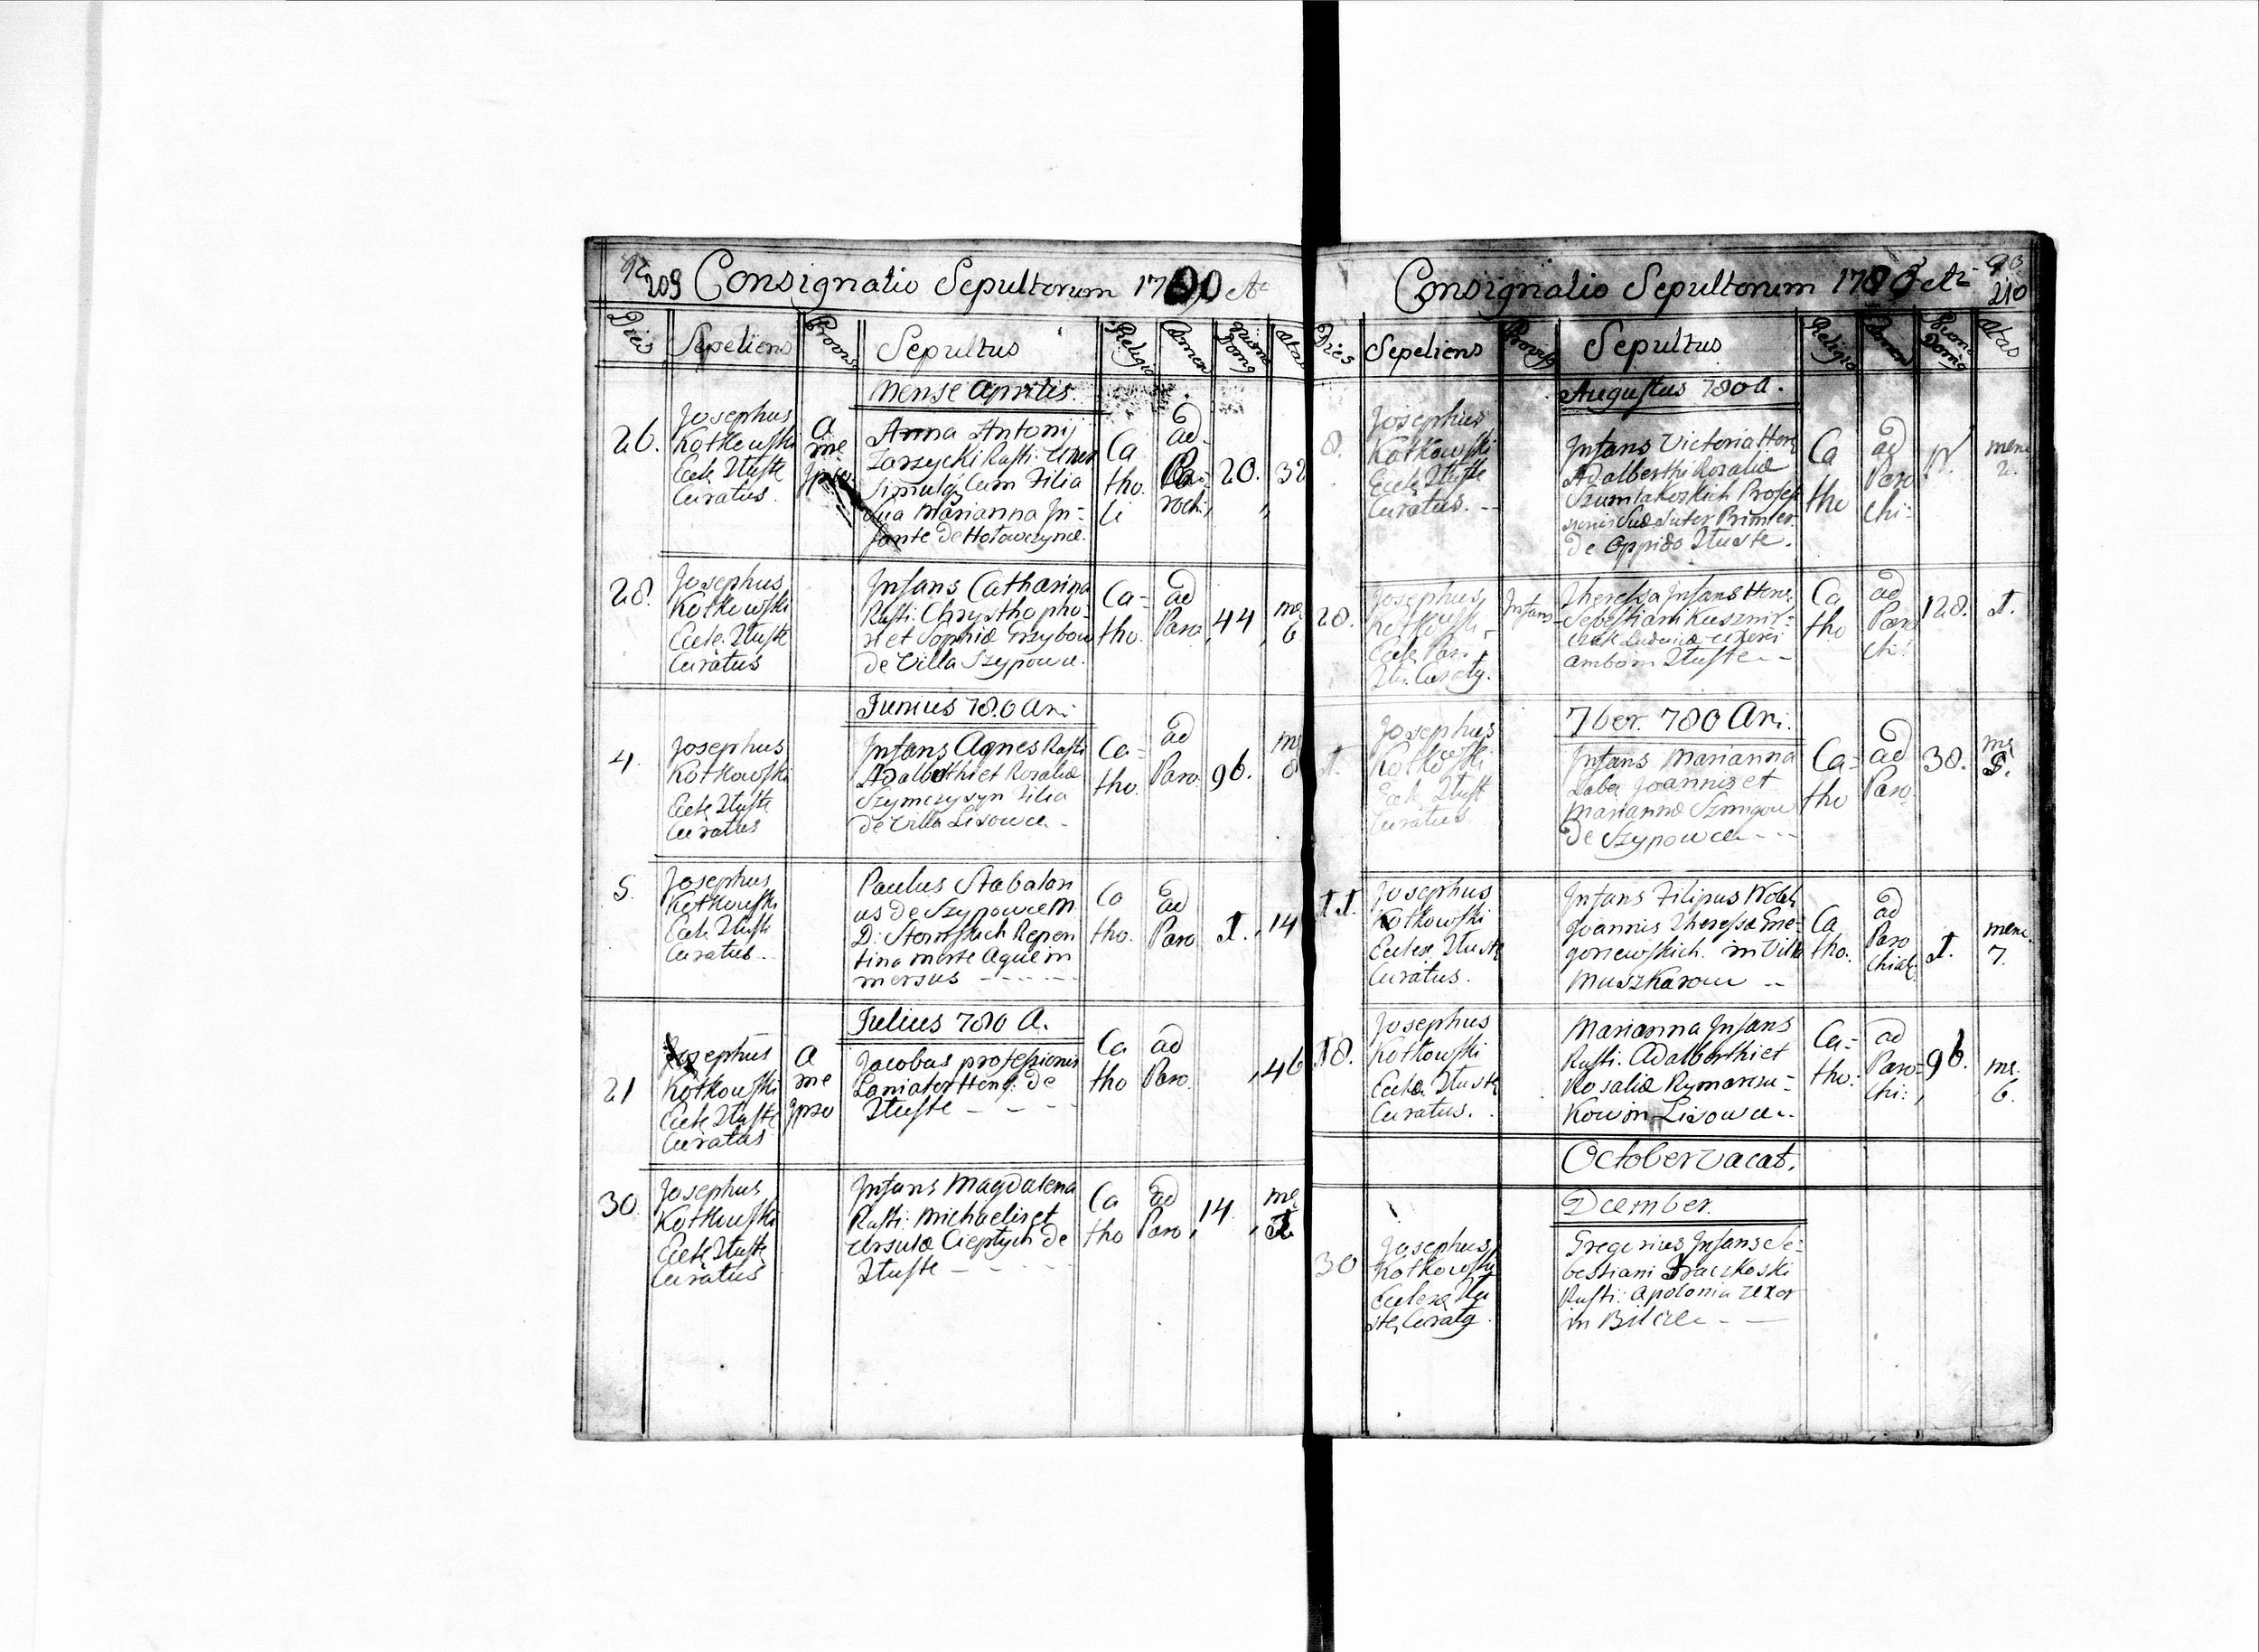 92
209 Consignatio Sepultorum 1780 A
Dies Sepeliens Provis Sepultus Religio Coemen Numerus Domus Aetas
Mense Aprilis.
26. Josephus
Kotkowski
Eccle Tluste
Curatus.
a
me
ipso
Anna Antonij
Zarzycki Rusti: Uxor
simulq Cum Filia
Sua Marianna In-
fante de Hołowczynce.
Ca
tho
li
ad
Pa-
rochi
20.
32
28. Josephus
Kotkowski
Eccle. Tluste
Curatus
Infans Catharina
Rusti: Chrysthopho-
ri et Sophiæ Grzybow
de Villa Szypowce.
Ca-
tho.
ad
Paro
44
me
6
Junius 780 Ani
4. Josephus
Kotkowski
Eccle Tluste
Curatus
Infans Agnes Rusti
Adalbethi et Rosaliæ
Szymczysyn Filia
de Villa Lisowce -
Ca-
tho.
ad
Paro.
96.
me
8
5. Josephus
Kotkowski
Eccle Tluste
Curatus.
Paulus Stabalon
us de Szypowce M
D: Repen
tina morte Aquæ im
mersus - - - -
Ca
tho.
ad
Paro
I.
14
Julius 780 A.
21 Josephus
Kotkowski
Eccle Tluste
Curatus
a
me
ipso
Jacobus professionis
Laniator Hone: de
Tluste - - - -
Ca
tho
ad
Paro.
46
30. Josephus
Kotkowski
Eccle Tluste
Curatus
Infans Magdalena
Rusti: Michaelis et
Ursulæ Cieptych de
Tluste - - - -
Ca
tho
ad
Paro,
14.
me
93
210
Consignatio Sepultorum 1780 A
Dies Sepeliens Provis Sepultus Religio Coemen Numerus Domus Aetas
Augustus 780 A.
8. Josephus
Kotkowski
Eccle Tluste
Curatus. -
Infans Victoria Hone
Adalberthi Rosaliæ
Profess
ionis Suæ Sutor
de Oppido Tluste.
Ca
tho
ad
Paro
chi-
mens
2.
28. Josephus
Kotkowski
Eccle Par
Tlu. Curatq.
Infans
Theressa Infans Hone
Sebestiani Kuszmir-
czak Ludovicæ Uxoris
amborum Tluste - -
Ca
tho
ad
Paro
chi
128.
I.
7ber. 780 Ani.
I. Josephus
Kotkowski
Eccle Tlust
Curatus
Infans Marianna
Labo Joannis et
Mariannæ Szmigow
de Szypowce - - -
Ca-
tho
ad
Paro.
38.
me
II. Josephus
Kotkowski
Eccleæ Tluste
Curatus.
Infans Filipus Nobli
Joannis Theressæ Gre-
goriewskich. in Villa
Muszkarow - -
Ca
tho.
ad
Paro
chial.
I.
mens.
7.
18. Josephus
Kotkowski
Eccleæ Tluste
Curatus.
Marianna Infans
Rusti. Adalberthi et
Rosaliæ Rymarczu-
Kow in Lisowce..
Ca-
tho.
ad
Paro-
chi:
96.
me.
6.
October vacat.
Dcember.
30 Josephus
Kotkowsky
Eccleæ Tlu
ste, Curatq.
Gregorius Infans Se-
bestiani
Rusti: Apolonia Uxor
in Bilcze - -